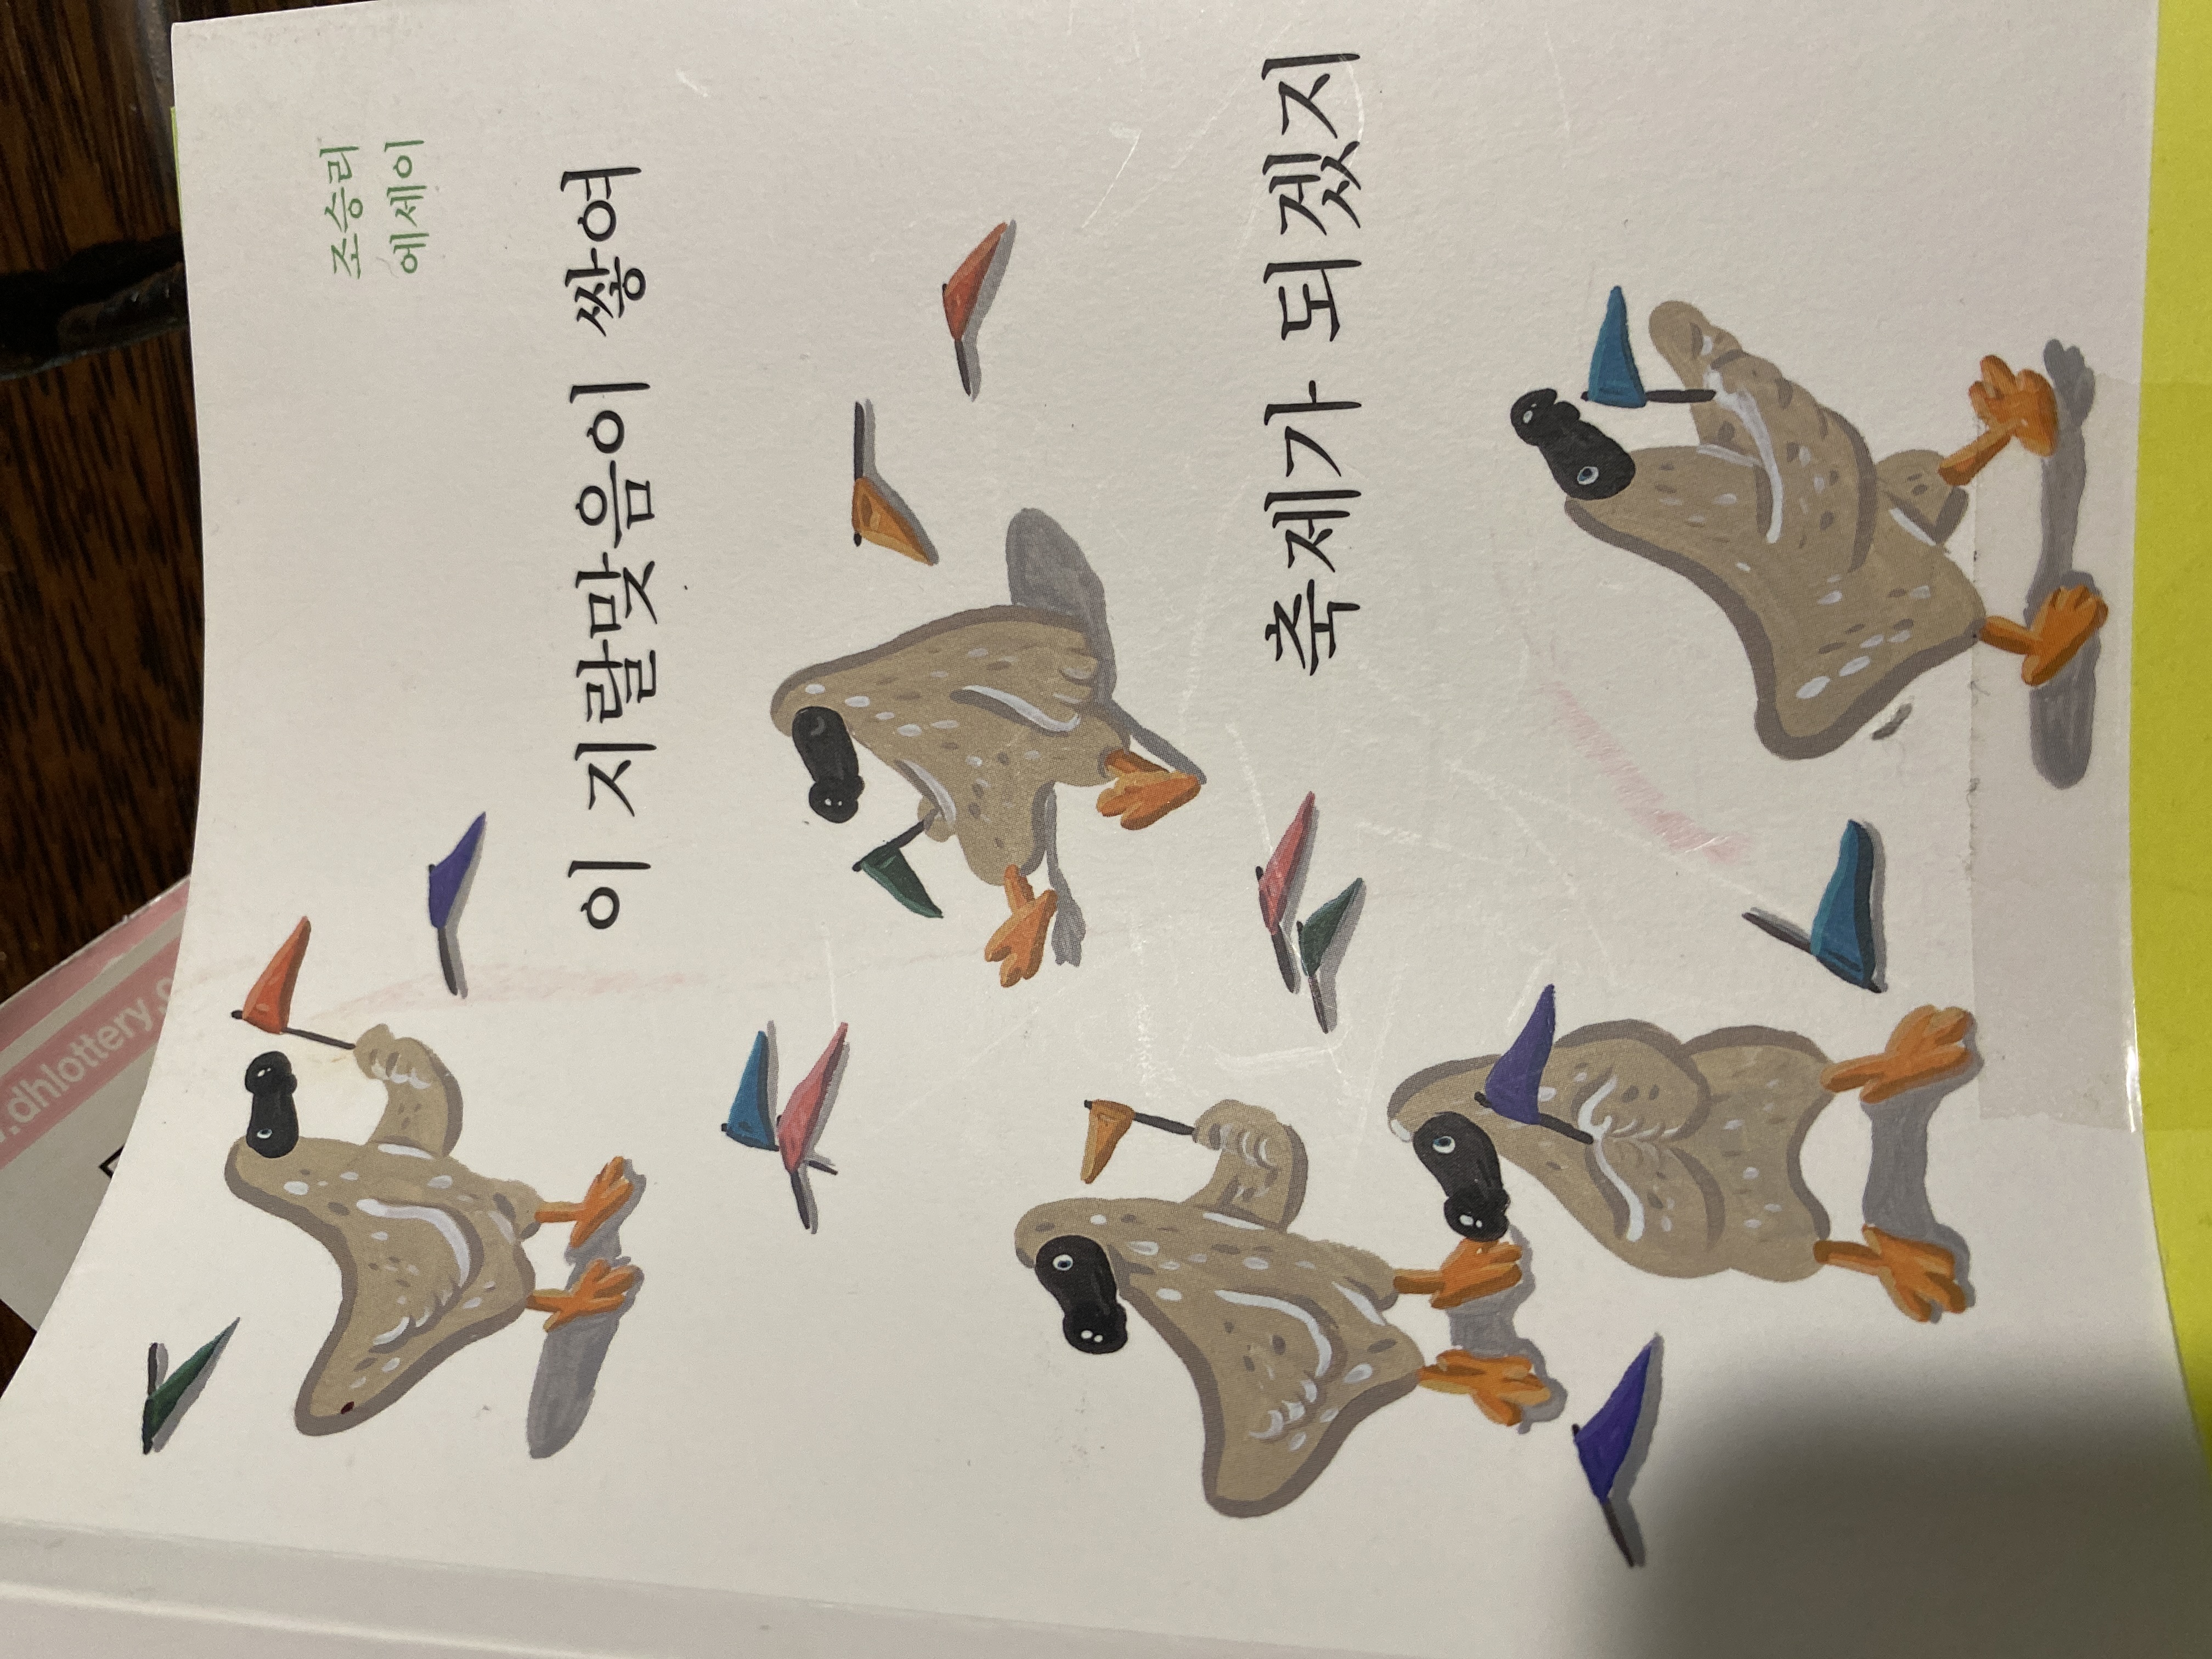 조승리
에세이
이 지랄맞음이 쌓여
축제가 되겠지
.dhlottery.